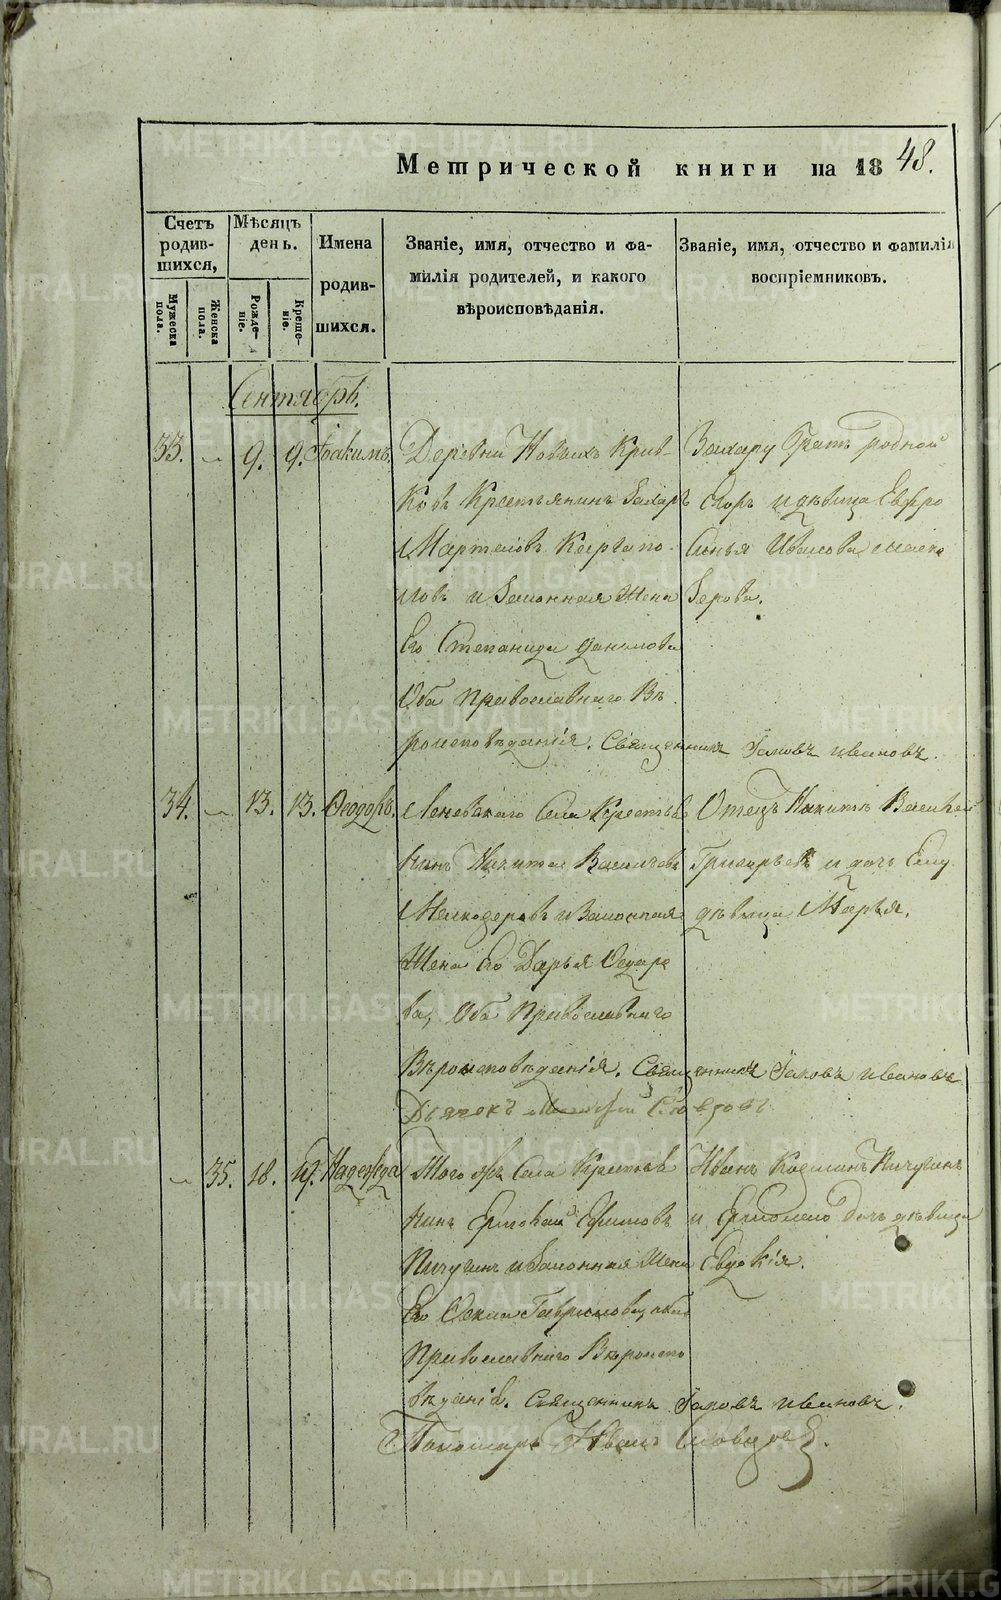 Метрической книги на 1848.
Счетъ родив-шихся,
Мужеска пола.
Женска пола.
Мѣсяцъ день.
Рожде-ніе.
Креще-ніе.
Имена родив-шихся.
Званіе, имя, отчество и фа-
милія родителей, и какого
вѣроисповѣданія.
Званіе, имя, отчество и фамилія
воспріемниковъ.
Сентябрь.
33. 9. 9. Іоакимъ.
Деревни Новыхъ Крив-
ковъ Крестьянинъ Захаръ
Мартемовъ Каргапо-
ловъ и Законная Жена
Его Степанида Данилова
Оба Православнаго Вѣ
роисповѣданія. Священникъ Іаковъ Ивановъ.
Захару Братъ родной
Егоръ и дѣвица Евфро
синья Иванова
34. 13. 13. Ѳеодоръ.
Села Крестья
нинъ Никита Васильевъ
и Законная
Жена Его Дарья
ва, Оба Православнаго
Вѣроисповѣданія. Священникъ Іаковъ Ивановъ
Дьячекъ
Отецъ Никита Василей
Григорьевъ и дочь Ему
дѣвица Марья.
35. 18. 19. Надежда
Того же Села Крестья
нинъ Ермолай Ефимовъ
Пичугинъ и Законная Жена
Его Гаврилова, оба
Православнаго Вѣроиспо
вѣданія. Священникъ Іаковъ Ивановъ.
Пономарь Иванъ Словцовъ.
Иванъ Козминъ Пичугинъ
и Ермолаю Дочь дѣвица
Евдокія.
METRIKI.GASO-URAL.RU